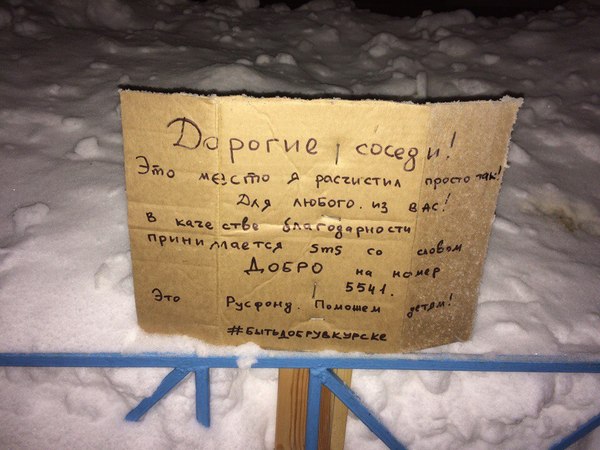 Дорогие соседи!
Это место я расчистил просто так!
Для любого из вас!
В качестве благодарности
принимается sms со словом
ДОБРО на номер
5541.
Это Русфонд. Поможем детям!
#БЫТЬДОБРУВКУРСКЕ